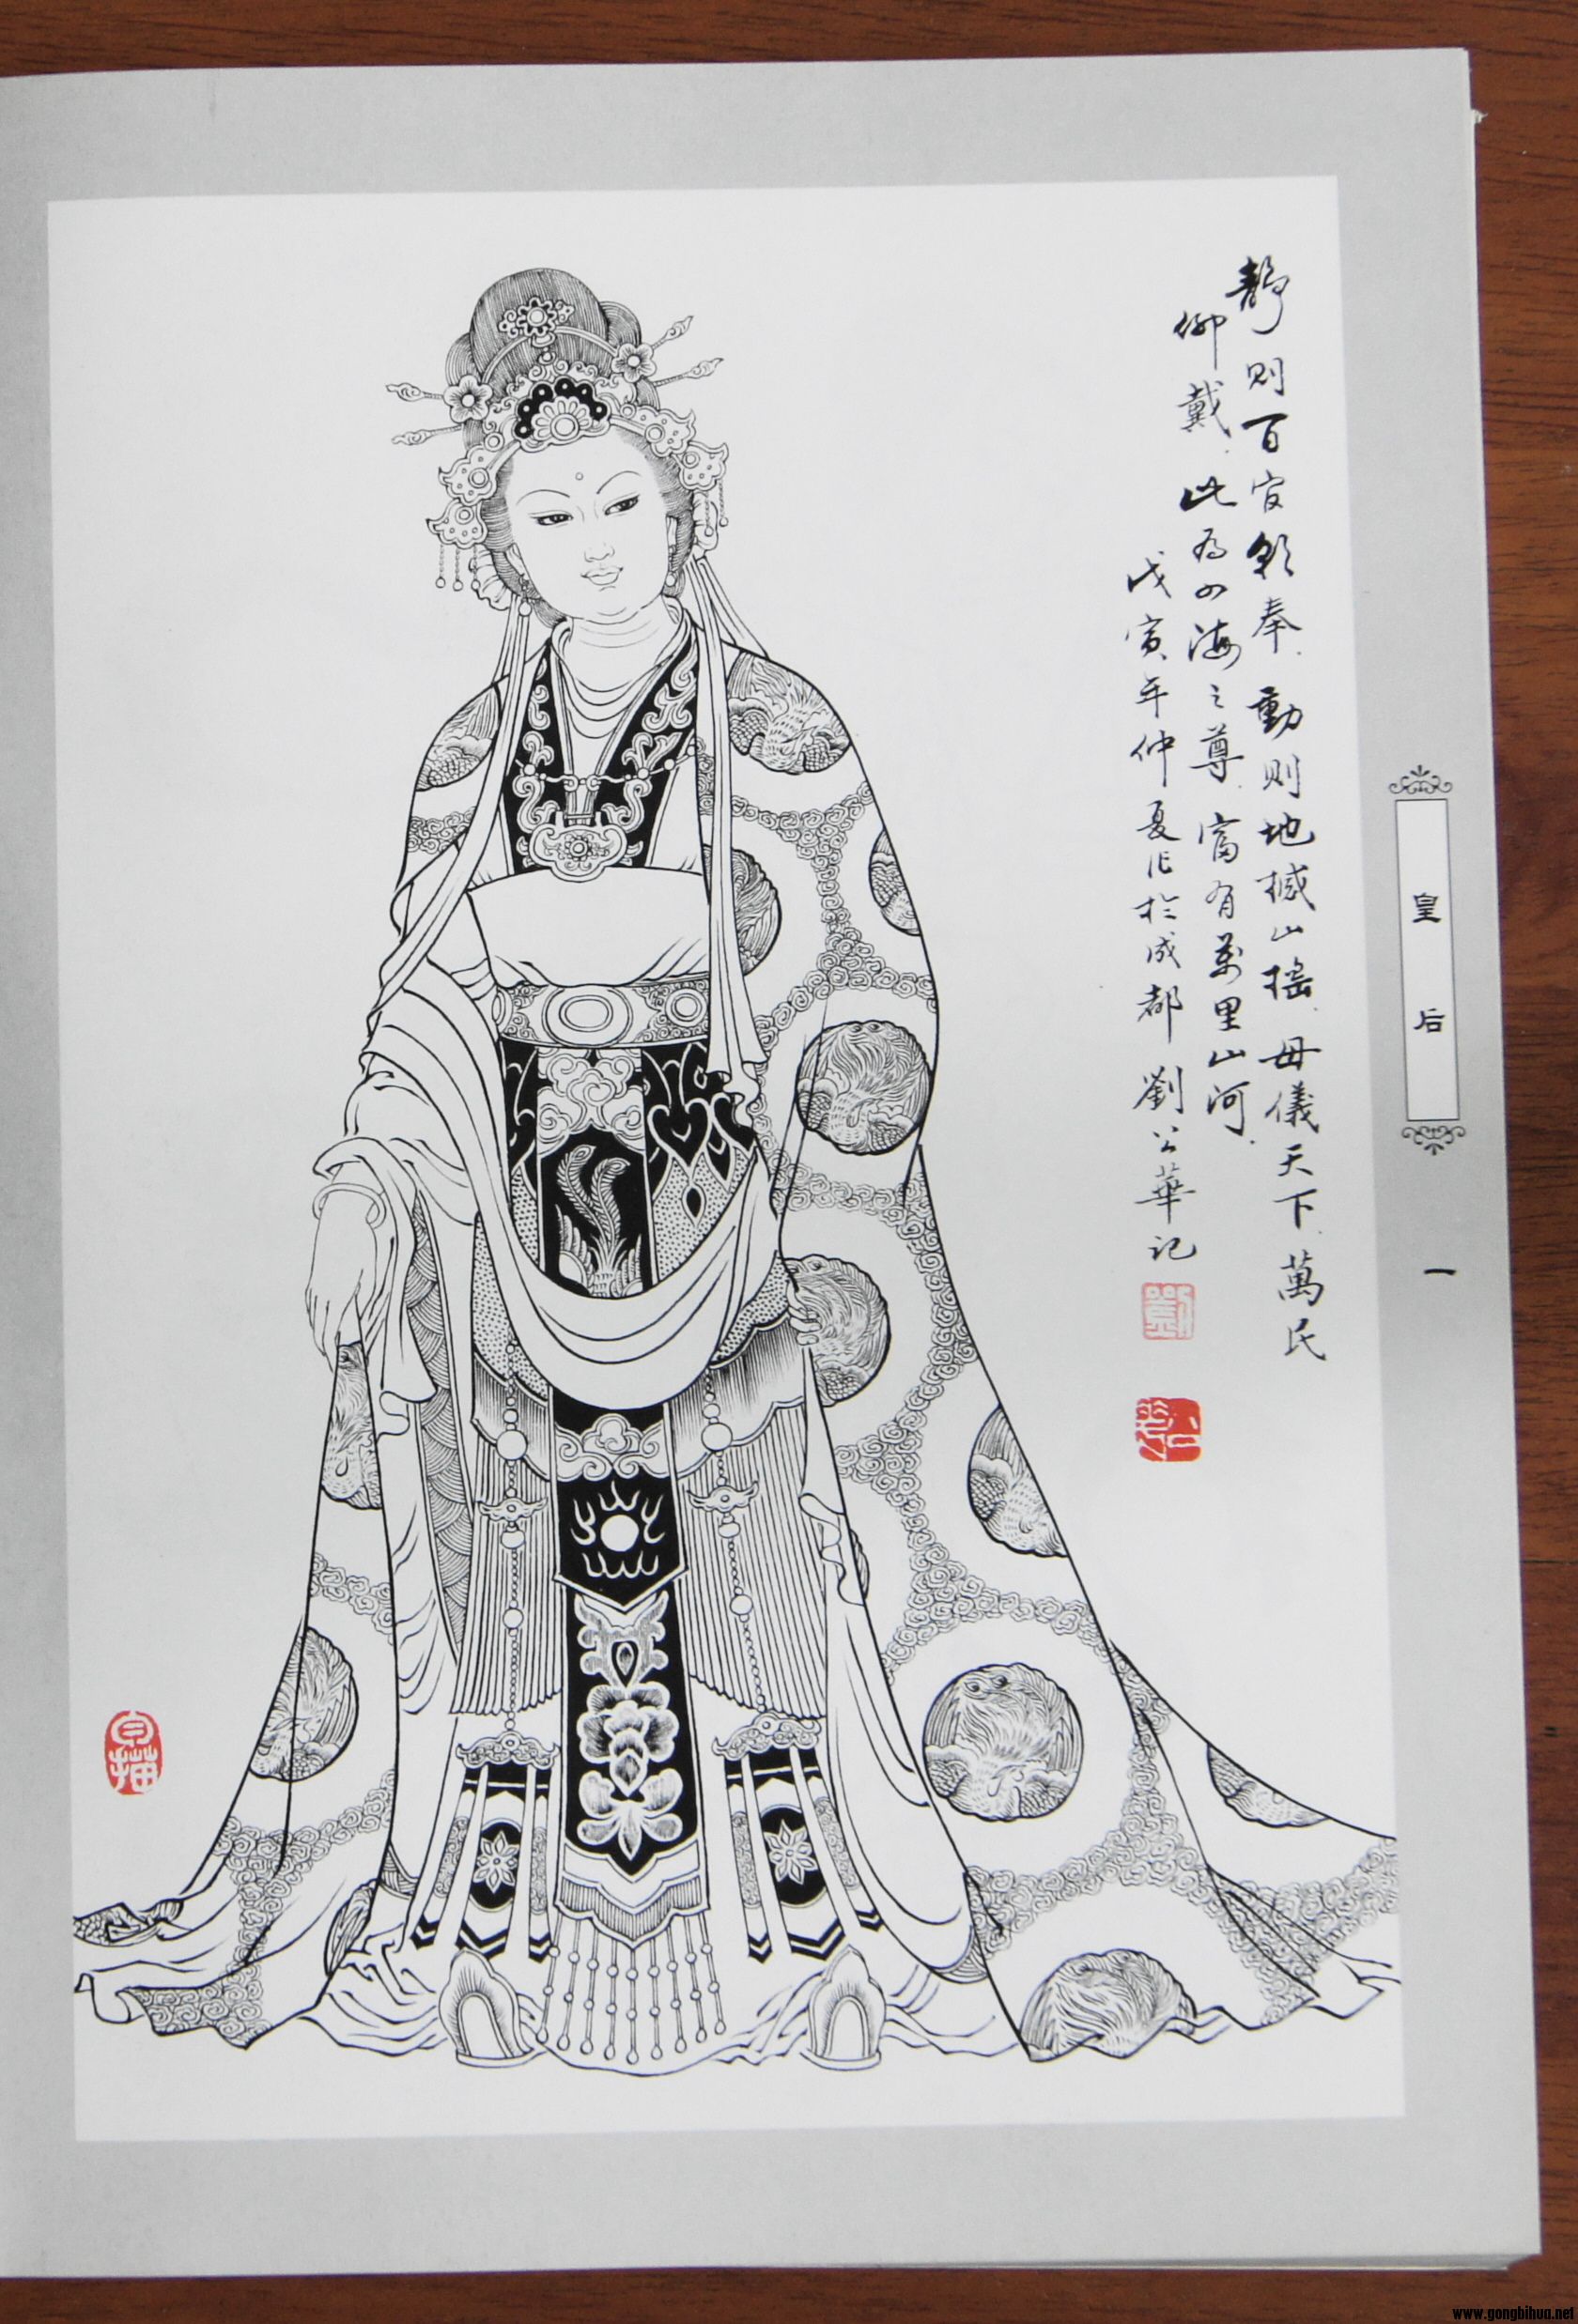 靜則百官朝奉動則地撼山搖母儀天下萬民
仰戴此為四海之尊富有萬里山河
戊寅年仲夏作於成都劉公華記
劉
公華
白描
皇后
一
www.gongbihua.net